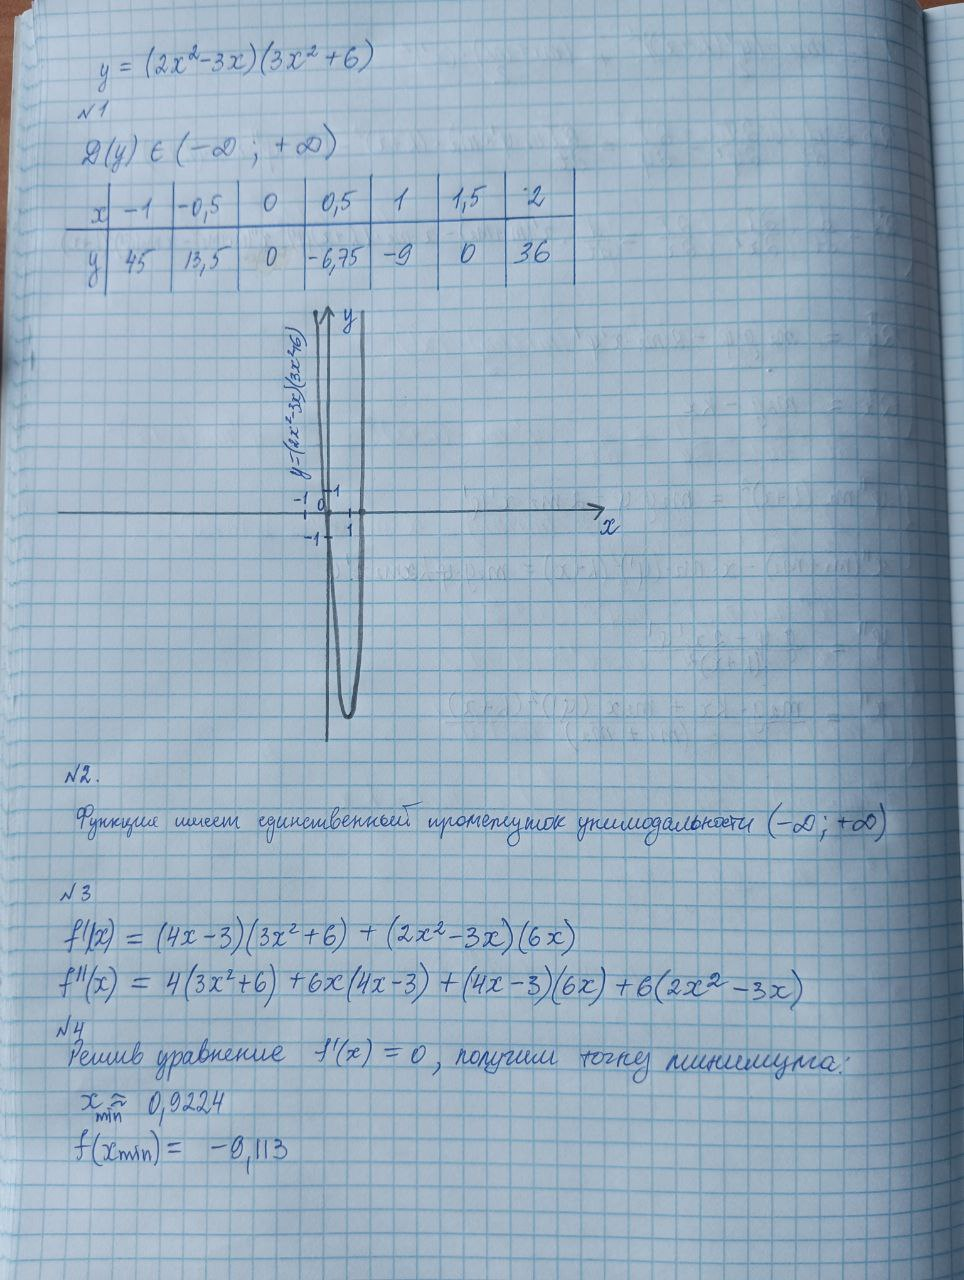 y = (2x²-3x)(3x²+6)
№1
D(y) ∈ (-∞; +∞)
x -1 -0,5 0 0,5 1 1,5 2
y 45 13,5 0 -6,75 -9 0 36
y
y=(2x²-3x)(3x²+6)
-1 0 1
-1 1 x
№2.
Функция имеет единственный промежуток унимодальности (-∞; +∞)
№3
f'(x) = (4x-3)(3x²+6) + (2x²-3x)(6x)
f''(x) = 4(3x²+6) + 6x(4x-3) + (4x-3)(6x) + 6(2x²-3x)
№4
Решив уравнение f'(x) = 0, получим точку минимума:
x min ≈ 0,9224
f(x min) = -9,113